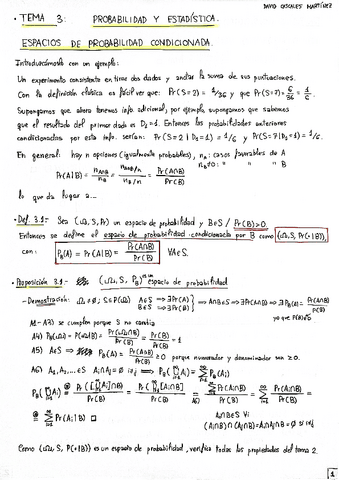 DAVID CASALES MARTÍNEZ
• TEMA 3: PROBABILIDAD Y ESTADÍSTICA.
ESPACIOS DE PROBABILIDAD CONDICIONADA.
Introduzcámoslo con un ejemplo:
Un experimento consistente en tirar dos dados y anotar la suma de sus puntuaciones.
Con la definición clásica es fácil ver que: Pr(S=2) = 1/36 y que: Pr(S=7) = 6/36 = 1/6.
Supongamos que ahora tenemos info. adicional, por ejemplo, supongamos que sabemos
que el resultado del primer dado es D₁=1. Entonces las probabilidades anteriores
condicionadas por esta info. serían: Pr(S=2|D₁=1) = 1/6 y Pr(S=7|D₁=1) = 1/6.
En general: hay n opciones (igualmente probables), n_A: casos favorables de A
n_B: " " B
Pr(A|B) = n_{A∩B}/n_B = (n_{A∩B}/n)/(n_B/n) = Pr(A∩B)/Pr(B)
lo que da lugar a...
• Def. 3.1:- Sea (Ω, S, Pr) un espacio de probabilidad y B∈S / Pr(B)>0.
Entonces se define el espacio de probabilidad condicionada por B como (Ω, S, Pr(·|B)),
con: P_B(A) = Pr(A|B) = Pr(A∩B)/Pr(B) ∀A∈S.
• Proposición 3.1:- (Ω, S, P_B) es un espacio de probabilidad
- Demostración: Ω ≠ ∅; S ⊆ P(Ω) A∈S ⇒ ∃Pr(A) B∈S ⇒ ∃Pr(B) } ⇒ A∩B∈S ⇒ ∃Pr(A∩B) ⇒ ∃P_B(A) = Pr(A∩B)/Pr(B)
ya que Pr(B)>0
A1-A3) se cumplen porque S no cambia
A4) P_B(Ω) = P(Ω|B) = Pr(Ω∩B)/Pr(B) = Pr(B)/Pr(B) = 1
A5) A∈S ⇒ P_B(A) = Pr(A∩B)/Pr(B) ≥ 0 porque numerador y denominador son ≥ 0.
A6) A₁, A₂, ... ∈S A_i∩A_j = ∅ i≠j ⇒ P_B(⋃A_i) = ∑ P_B(A_i)
P_B(⋃A_i) = Pr([⋃A_i]∩B)/Pr(B) = Pr(⋃[A_i∩B])/Pr(B) = ∑Pr(A_i∩B)/Pr(B) = ∑ Pr(A_i∩B)/Pr(B) =
= ∑ Pr(A_i|B) □
A_i∩B∈S ∀i
(A_i∩B)∩(A_j∩B) = A_i∩A_j∩B = ∅ si i≠j
Como (Ω, S, P(·|B)) es un espacio de probabilidad, verifica todas las propiedades del tema 2.
1